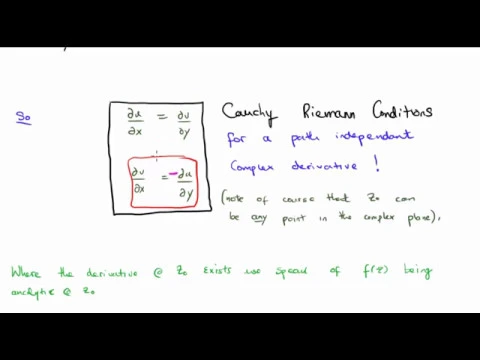 So
∂u/∂x = ∂v/∂y
∂v/∂x = -∂u/∂y
Cauchy Riemann Conditions
for a path independant
Complex derivative !
(note of course that Z₀ can
be any point in the complex plane),
Where the derivative @ Z₀ exists we speak of f(z) being
analytic @ z₀